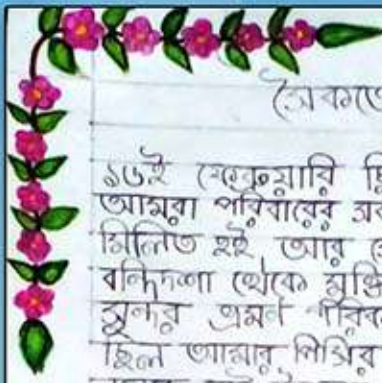 সৈকতে
১৬ই ফেব্রুয়ারি ছি
আমরা পরিবারের সব
মিলিত হই আর
বন্দিদশা থেকে মুক্তি
সুন্দর এমন পরিবে
ছিল আমার পিসির